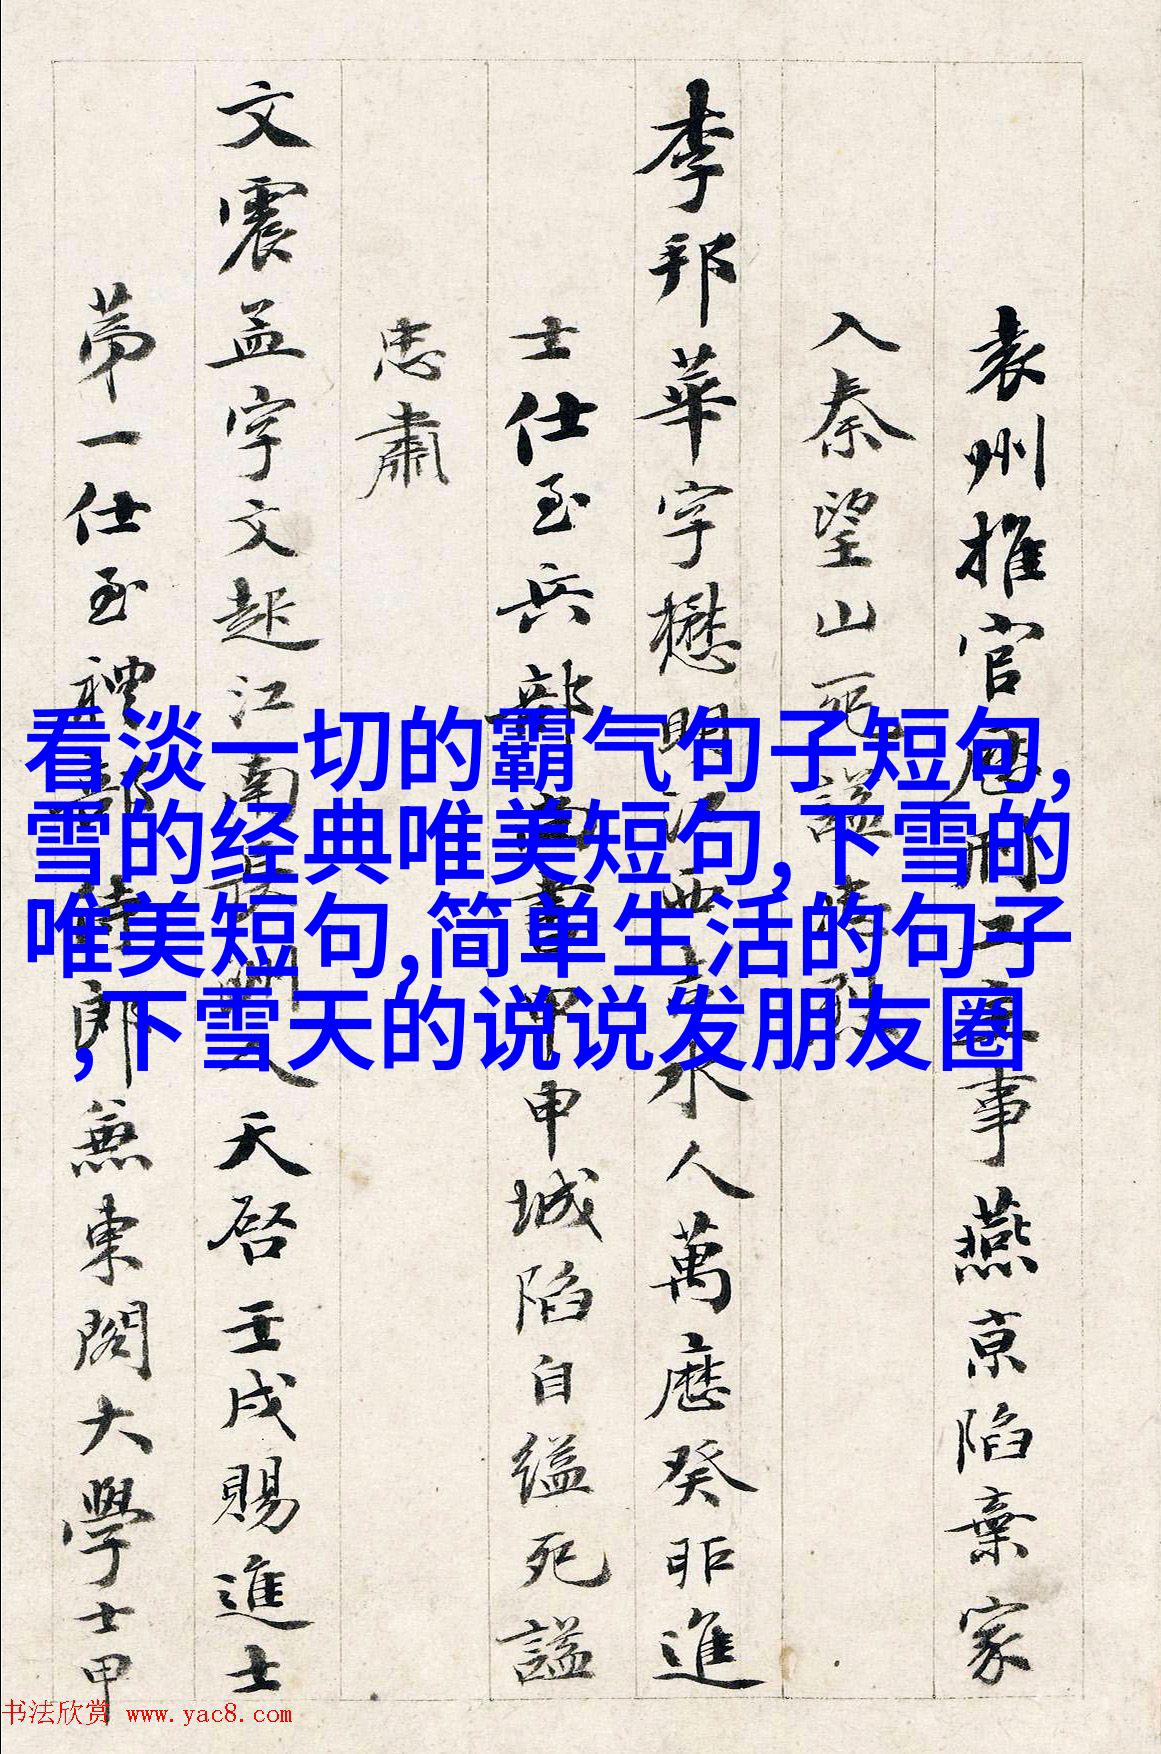 袁州推官歷刑工事燕京陷棄家
入秦望山死謚
李邦華字懋明江西吉水人萬曆癸卯進
士仕至兵部尚書甲申城陷自縊死謚
忠肅
文震孟字文起江南長洲人天啓壬戌賜進士
第一仕至禮部侍郎兼東閣大學士甲
看淡一切的霸气句子短句,
雪的经典唯美短句,下雪的
唯美短句,简单生活的句子
,下雪天的说说发朋友圈
书法欣赏 www.yac8.com